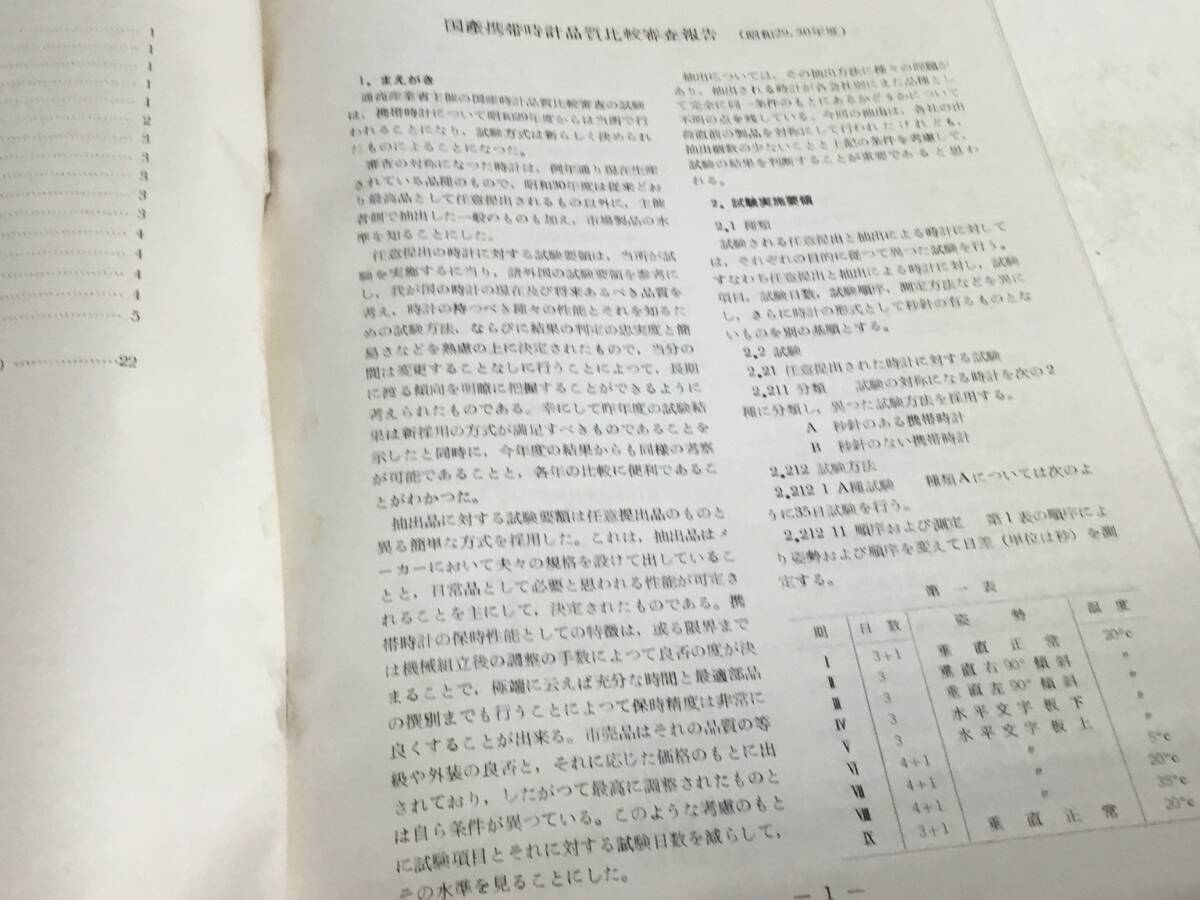 1
1
1
1
2
3
3
3
3
3
4
4
4
4
5
22
国産携帯時計品質比較審査報告 (昭和29,30年度)
1. まえがき
通商産業省主催の国産時計品質比較審査の試験
は、携帯時計について昭和29年度からは当所で行
われることになり、試験方式は新らしく決められ
たものによることになつた。
審査の対称になつた時計は、例年通り現在生産
されている品種のもので、昭和30年度は従来どお
り最高品として任意提出されるもの以外に、主催
者側で抽出した一般のものも加え、市場製品の水
準を知ることにした。
任意提出の時計に対する試験要領は、当所が試
験を実施するに当り、諸外国の試験要領を参考に
し、我が国の時計の現在及び将来あるべき品質を
考え、時計の持つべき種々の性能とそれを知るた
めの試験方法、ならびに結果の判定の忠実度と簡
易さなどを熟慮の上に決定されたもので、当分の
間は変更することなしに行うことによつて、長期
に渡る傾向を明瞭に把握することができるように
考えられたものである。幸にして昨年度の試験結
果は新採用の方式が満足すべきものであることを
示したと同時に、今年度の結果からも同様の考察
が可能であることと、各年の比較に便利であるこ
とがわかつた。
抽出品に対する試験要領は任意提出品のものと
異る簡単な方式を採用した。これは、抽出品はメ
ーカーにおいて夫々の規格を設けて出しているこ
とと、日常品として必要と思われる性能が可定さ
れることを主にして、決定されたものである。携
帯時計の保時性能としての特徴は、或る限界まで
は機械組立後の調整の手数によつて良否の度が決
まることで、極端に云えば充分な時間と最適部品
の撰別までも行うことによつて保時精度は非常に
良くすることが出来る。市売品はそれの品質の等
級や外装の良否と、それに応じた価格のもとに出
されており、したがつて最高に調整されたものと
は自ら条件が異つている。このような考慮のもと
に試験項目とそれに対する試験日数を減らして、
その水準を見ることにした。
抽出については、その抽出方法に種々の問題が
あり、抽出される時計が各会社別にまた品種とし
て完全に同一条件のもとにあるかどうかについて
不明の点を残している。今回の抽出は、各社の出
荷直前の製品を対称にして行われたけれども、
抽出個数の少ないことと上記の条件を考慮して、
試験の結果を判断することが重要であると思わ
れる。
2. 試験実施要領
2.1 種類
試験される任意提出と抽出による時計に対して
は、それぞれの目的に従つて異つた試験を行う。
すなわち任意提出と抽出による時計に対し、試験
項目、試験日数、試験順序、測定方法などを異に
し、さらに時計の形式として秒針の有るものとな
いものを別の基順とする。
2.2 試験
2.21 任意提出された時計に対する試験
2.211 分類 試験の対称になる時計を次の2
種に分類し、異つた試験方法を採用する。
A 秒針のある携帯時計
B 秒針のない携帯時計
2.212 試験方法
2.212 1 A種試験 種類Aについては次のよ
うに35日試験を行う。
2.212 11 順序および測定 第1表の順序によ
り姿勢および順序を変えて日差(単位は秒)を測
定する。
第一表
期 日数 姿勢 温度
I 3+1 垂直正常 20°c
II 3 垂直右90°傾斜 〃
III 3 垂直左90°傾斜 〃
IV 3 水平文字板下 〃
V 3 水平文字板上 〃
VI 4+1 〃 5°c
VII 4+1 〃 20°c
VIII 4+1 〃 35°c
IX 3+1 垂直正常 20°c
— 1 —